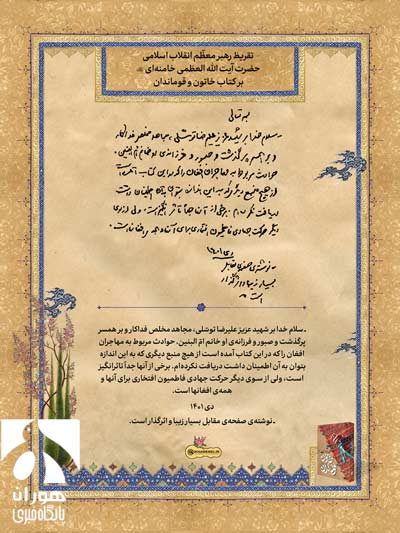 تقریظ رهبر معظّم انقلاب اسلامی
حضرت آیت الله العظمی خامنه‌ای
بر کتاب خاتون و قوماندان
بسمه تعالی
سلام خدا بر شهید عزیز علیرضا توسّلی، مجاهد مخلص فداکار
و بر همسر پرگذشت و صبور و فرزانه‌ی او خانم امّ البنین.
حوادث مربوط به مهاجران افغان را که در این کتاب آمده است
از هیچ منبع دیگری که به این اندازه بتوان به آن اطمینان داشت
دریافت نکرده‌ام. برخی از آنها جداً تأثرانگیز است، ولی از سوی
دیگر حرکت جهادی فاطمیون افتخاری برای آنها و همه‌ی افغانها است.
دی ۱۴۰۱
نوشته‌ی صفحه‌ی مقابل
بسیار زیبا و اثرگذار
است
ـ سلام خدا بر شهید عزیز علیرضا توسّلی، مجاهد مخلص فداکار و بر همسر
پرگذشت و صبور و فرزانه‌ی او خانم امّ البنین. حوادث مربوط به مهاجران
افغان را که در این کتاب آمده است از هیچ منبع دیگری که به این اندازه
بتوان به آن اطمینان داشت دریافت نکرده‌ام. برخی از آنها جداً تأثرانگیز
است، ولی از سوی دیگر حرکت جهادی فاطمیون افتخاری برای آنها و
همه‌ی افغانها است.
دی ۱۴۰۱
ـ نوشته‌ی صفحه‌ی مقابل بسیار زیبا و اثرگذار است.
هوران
پایگاه خبری